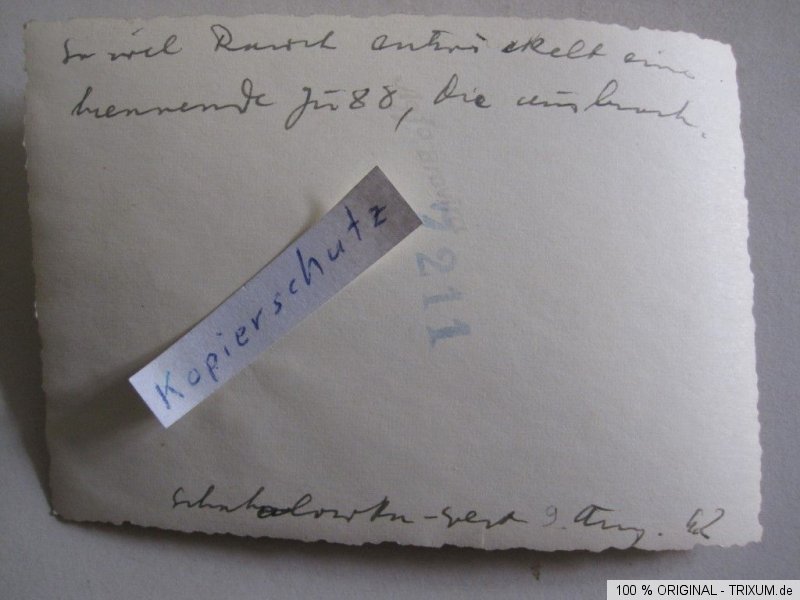 So viel Rauch entwickelt eine
brennende Ju 88, die ausbrach.
Kopierschutz
211
9. Aug. 42
100 % ORIGINAL - TRIXUM.de